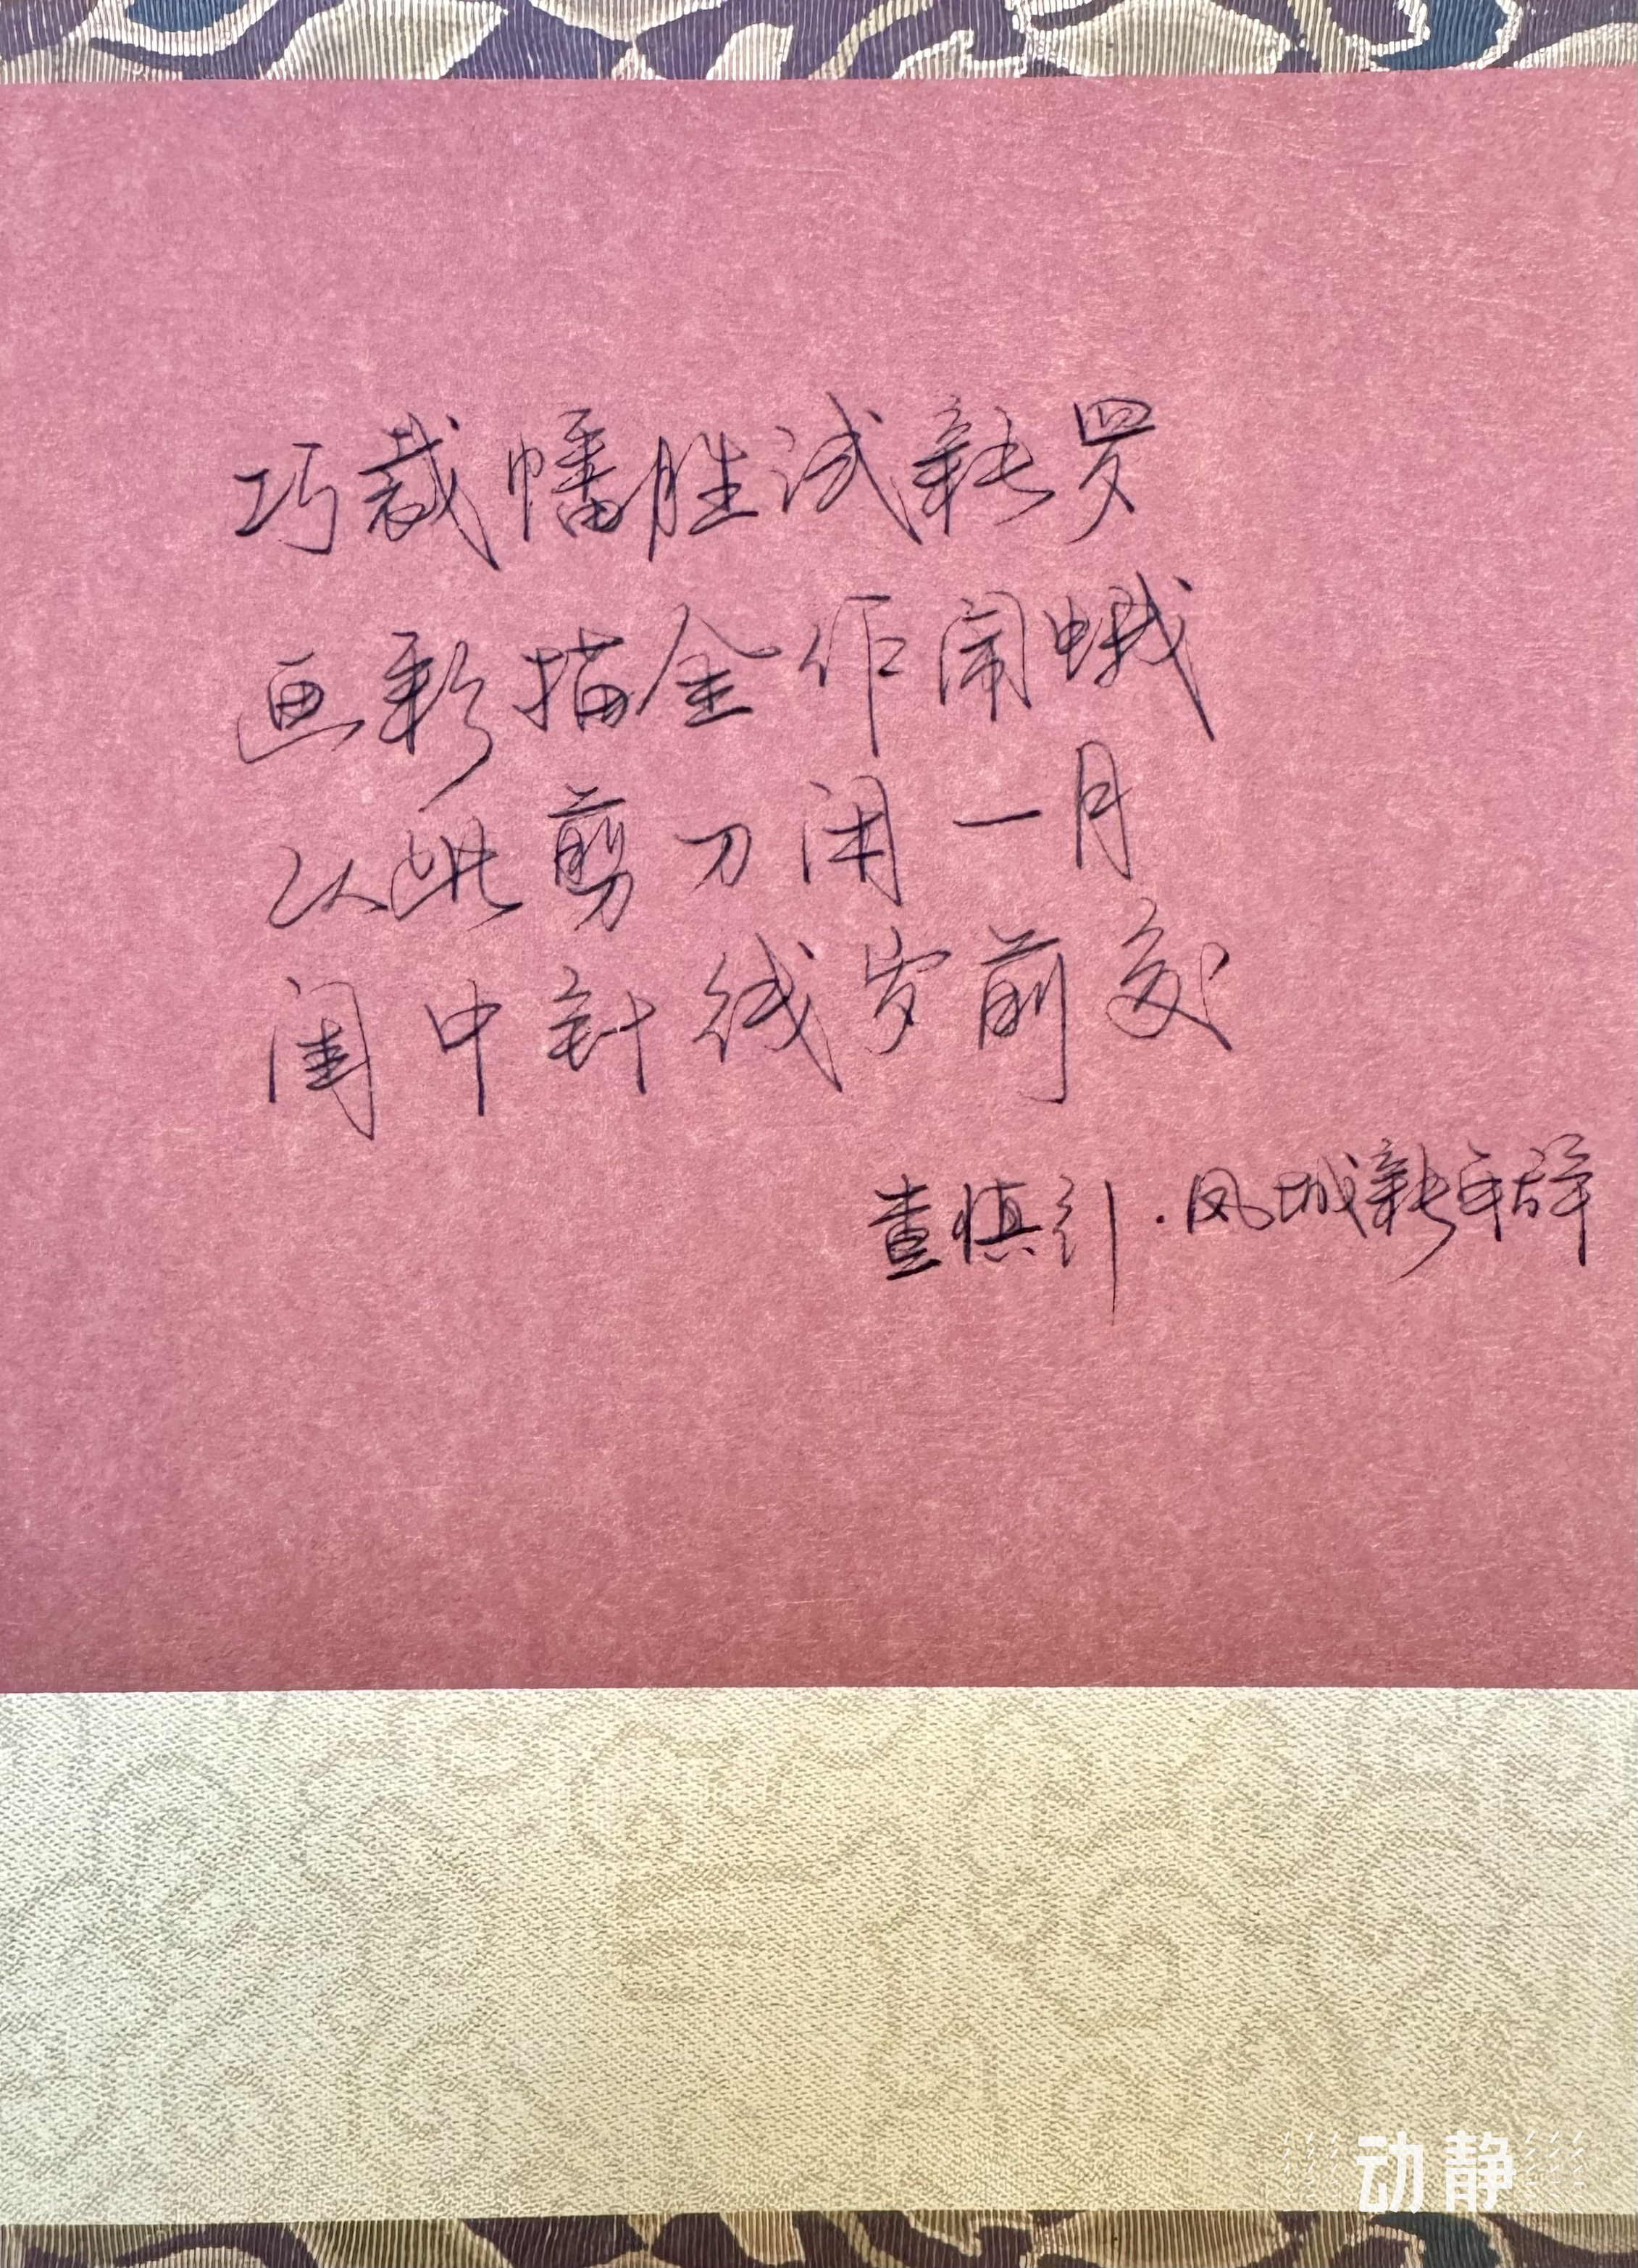 巧裁幡胜试新罗
画彩描金作闹蛾
从此剪刀闲一月
闺中针线岁前多
查慎行·凤城新年辞
动静